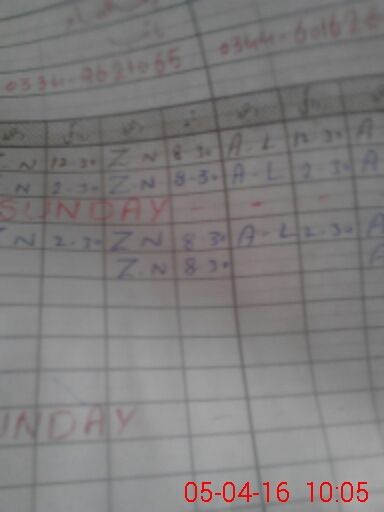 0334-9621065 0344-601626
N 12-30 Z N 8-30 A-L 12-30 A
N 2-30 Z N 8-30 A-L 2-30 A
SUNDAY - - -
N 2-30 Z N 8-30 A-L 2-30 A
Z.N 8.30
UNDAY
05-04-16 10:05